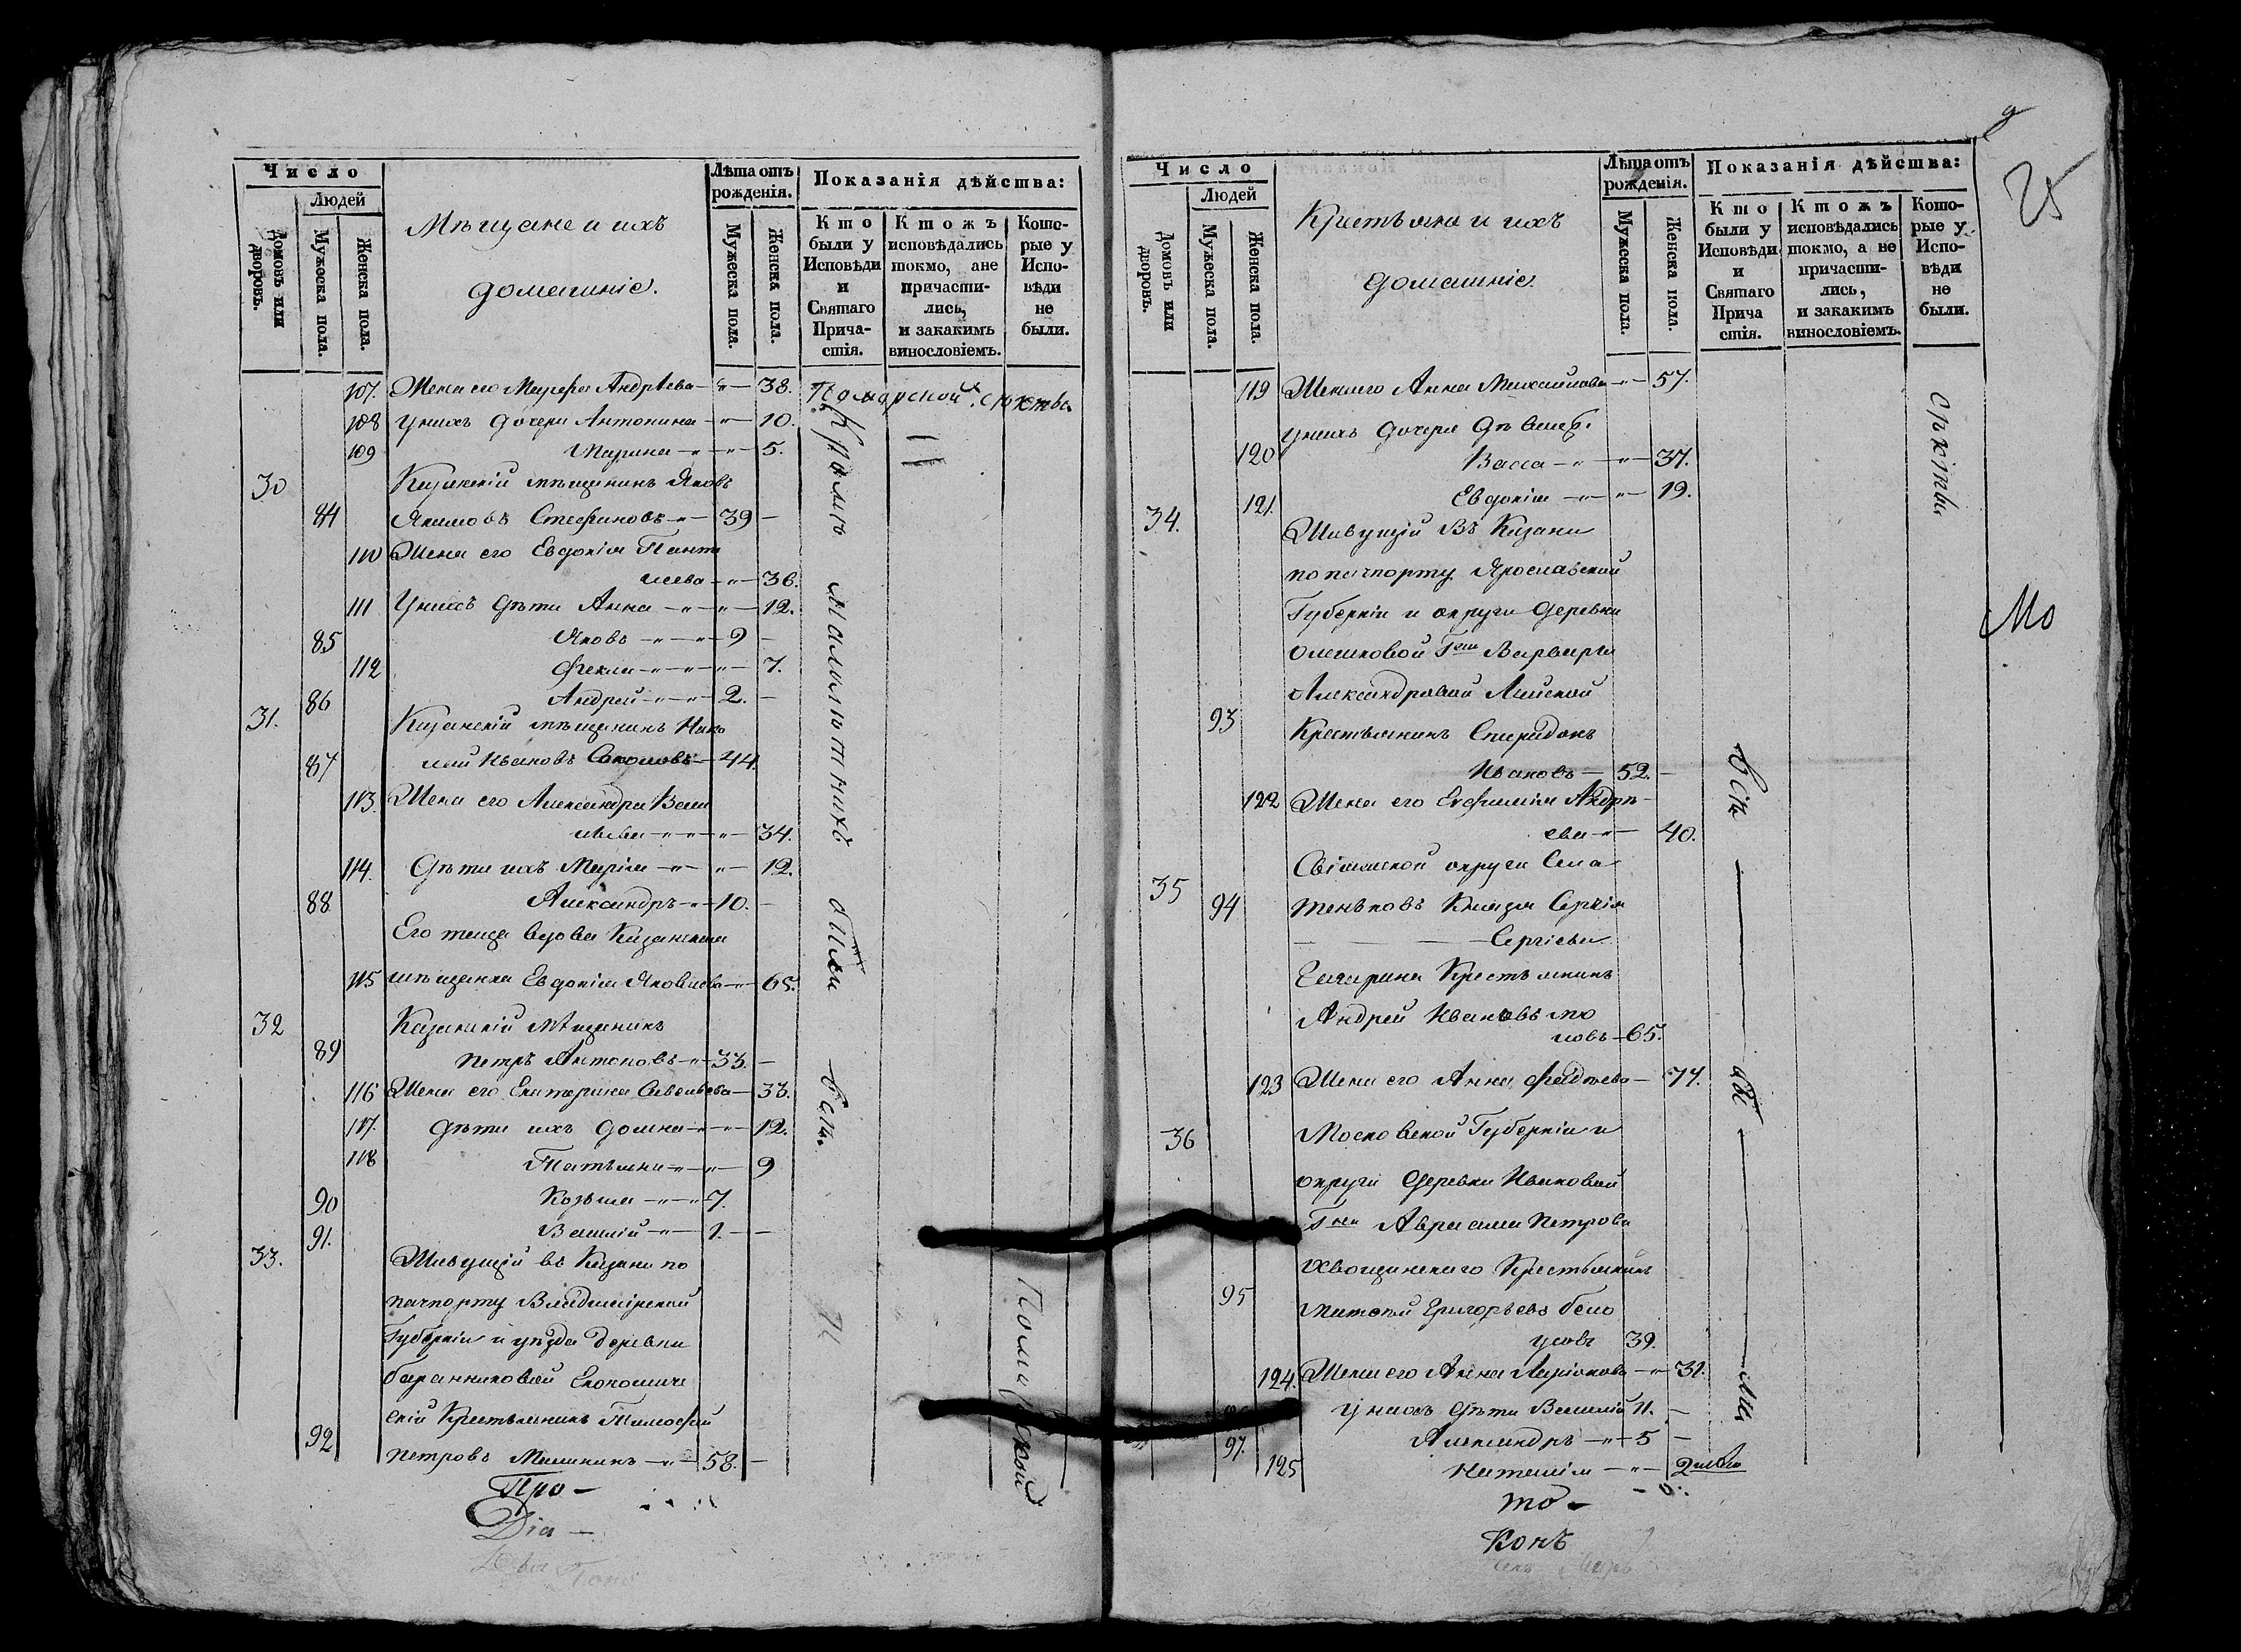 Число
Людей
Домовъ или дворовъ.
Мужеска пола.
Женска пола.
Мѣщане и ихъ
домашніе.
Лѣта отъ рожденія.
Мужеска пола.
Женска пола.
Показанія дѣйства:
Кто были у Исповѣди и Святаго Причастія.
Ктожъ исповѣдались токмо, а не причастились, и закакимъ винословіемъ.
Которые у Исповѣди не были.
107. Жена его Марфа Андрѣева 38.
108 У нихъ дочери Антонина 10.
109 Марина 5.
30 Казанскій мѣщанинъ Яковъ
84 Якимовъ Стефановъ 39
110 Жена его Евдокія Панте
леева 36.
111 У нихъ дѣти Анна 12.
85 Яковъ 9
112 Фекла 7.
86 Андрей 2.
31. Казанскій мѣщанинъ Нико
87 лай Ивановъ Соколовъ 44.
113. Жена его Александра Васи
льева 34.
114. Дѣти ихъ Марія 12.
88 Александръ 10.
Его теща вдова Казанская
115 мѣщанка Евдокія Яковлева 65.
32 Казанскій мѣщанинъ
89 Петръ Антоновъ 33.
116 Жена его Екатерина Савельева 33.
117. дѣти ихъ Домна 12.
118 Татьяна 9
90 Козьма 7.
91. Василій 1.
33. Живущій въ Казани по
пачпорту Владимірской
Губерніи и уѣзда деревни
баранниковой Економиче
скій Крестьянинъ Тимофей
92 Петровъ Мишнинъ 58.
Поморской секты
Кромѣ
малолѣтнихъ
были
всѣ.
Поморской
Про-
Діа-
Число
Людей
Домовъ или дворовъ.
Мужеска пола.
Женска пола.
Крестьяне и ихъ
домашніе.
Лѣта отъ рожденія.
Мужеска пола.
Женска пола.
Показанія дѣйства:
Кто были у Исповѣди и Святаго Причастія.
Ктожъ исповѣдались токмо, а не причастились, и закакимъ винословіемъ.
Которые у Исповѣди не были.
25
119 Жена его Анна Михайлова 57.
у нихъ дочери дѣвицы
120 Васса 37.
121. Евдокія 19.
34. Живущій Въ Казани
по пачпорту Ярославской
Губерніи и округи деревни
Олешковой Гжи Варвары
Александровой
93 Крестьянинъ Спиридонъ
Ивановъ 52.
122 Жена его Евфимія Андрѣ-
ева 40.
Свіяжской округи Села
35 94 Теньковъ Князя Сергія
Сергіева
Гагарина Крестьянинъ
Андрей Ивановъ
65.
123 Жена его Анна Фадѣева 77.
36 Московской Губерніи и
округи Деревни Ивановой
Гна Авраама Петрова
Хвощинскаго Крестьянинъ
95 Григорьевъ бело
усовъ 39.
124. Жена его Анна Ларіонова 31.
у нихъ дѣти Василій 11.
97. Александръ 5
125 Наталія 2
секты
всѣ
Мо
то-
конъ